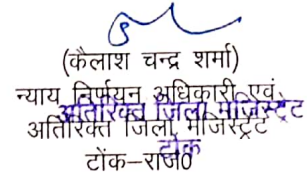 (कैलाश चन्द्र शर्मा)
न्याय निर्णयन अधिकारी एवं
अतिरिक्त जिला मजिस्ट्रेट
अतिरिक्त जिला, मजिस्ट्रेट
टोंक
टोंक-राज0